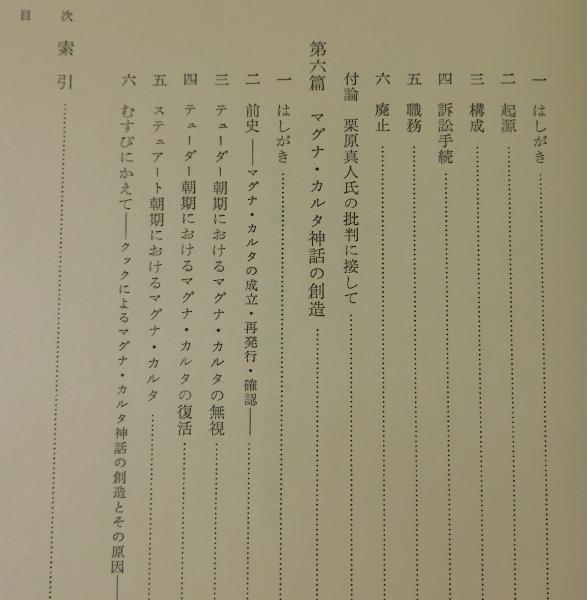 一 はしがき
二 起源
三 構成
四 訴訟手続
五 職務
六 廃止
付論 栗原真人氏の批判に接して
第六篇 マグナ・カルタ神話の創造
一 はしがき
二 前史――マグナ・カルタの成立・再発行・確認――
三 テューダー朝期におけるマグナ・カルタの無視
四 テューダー朝期におけるマグナ・カルタの復活
五 ステュアート朝期におけるマグナ・カルタ
六 むすびにかえて――クックによるマグナ・カルタ神話の創造とその原因――
索引
目次